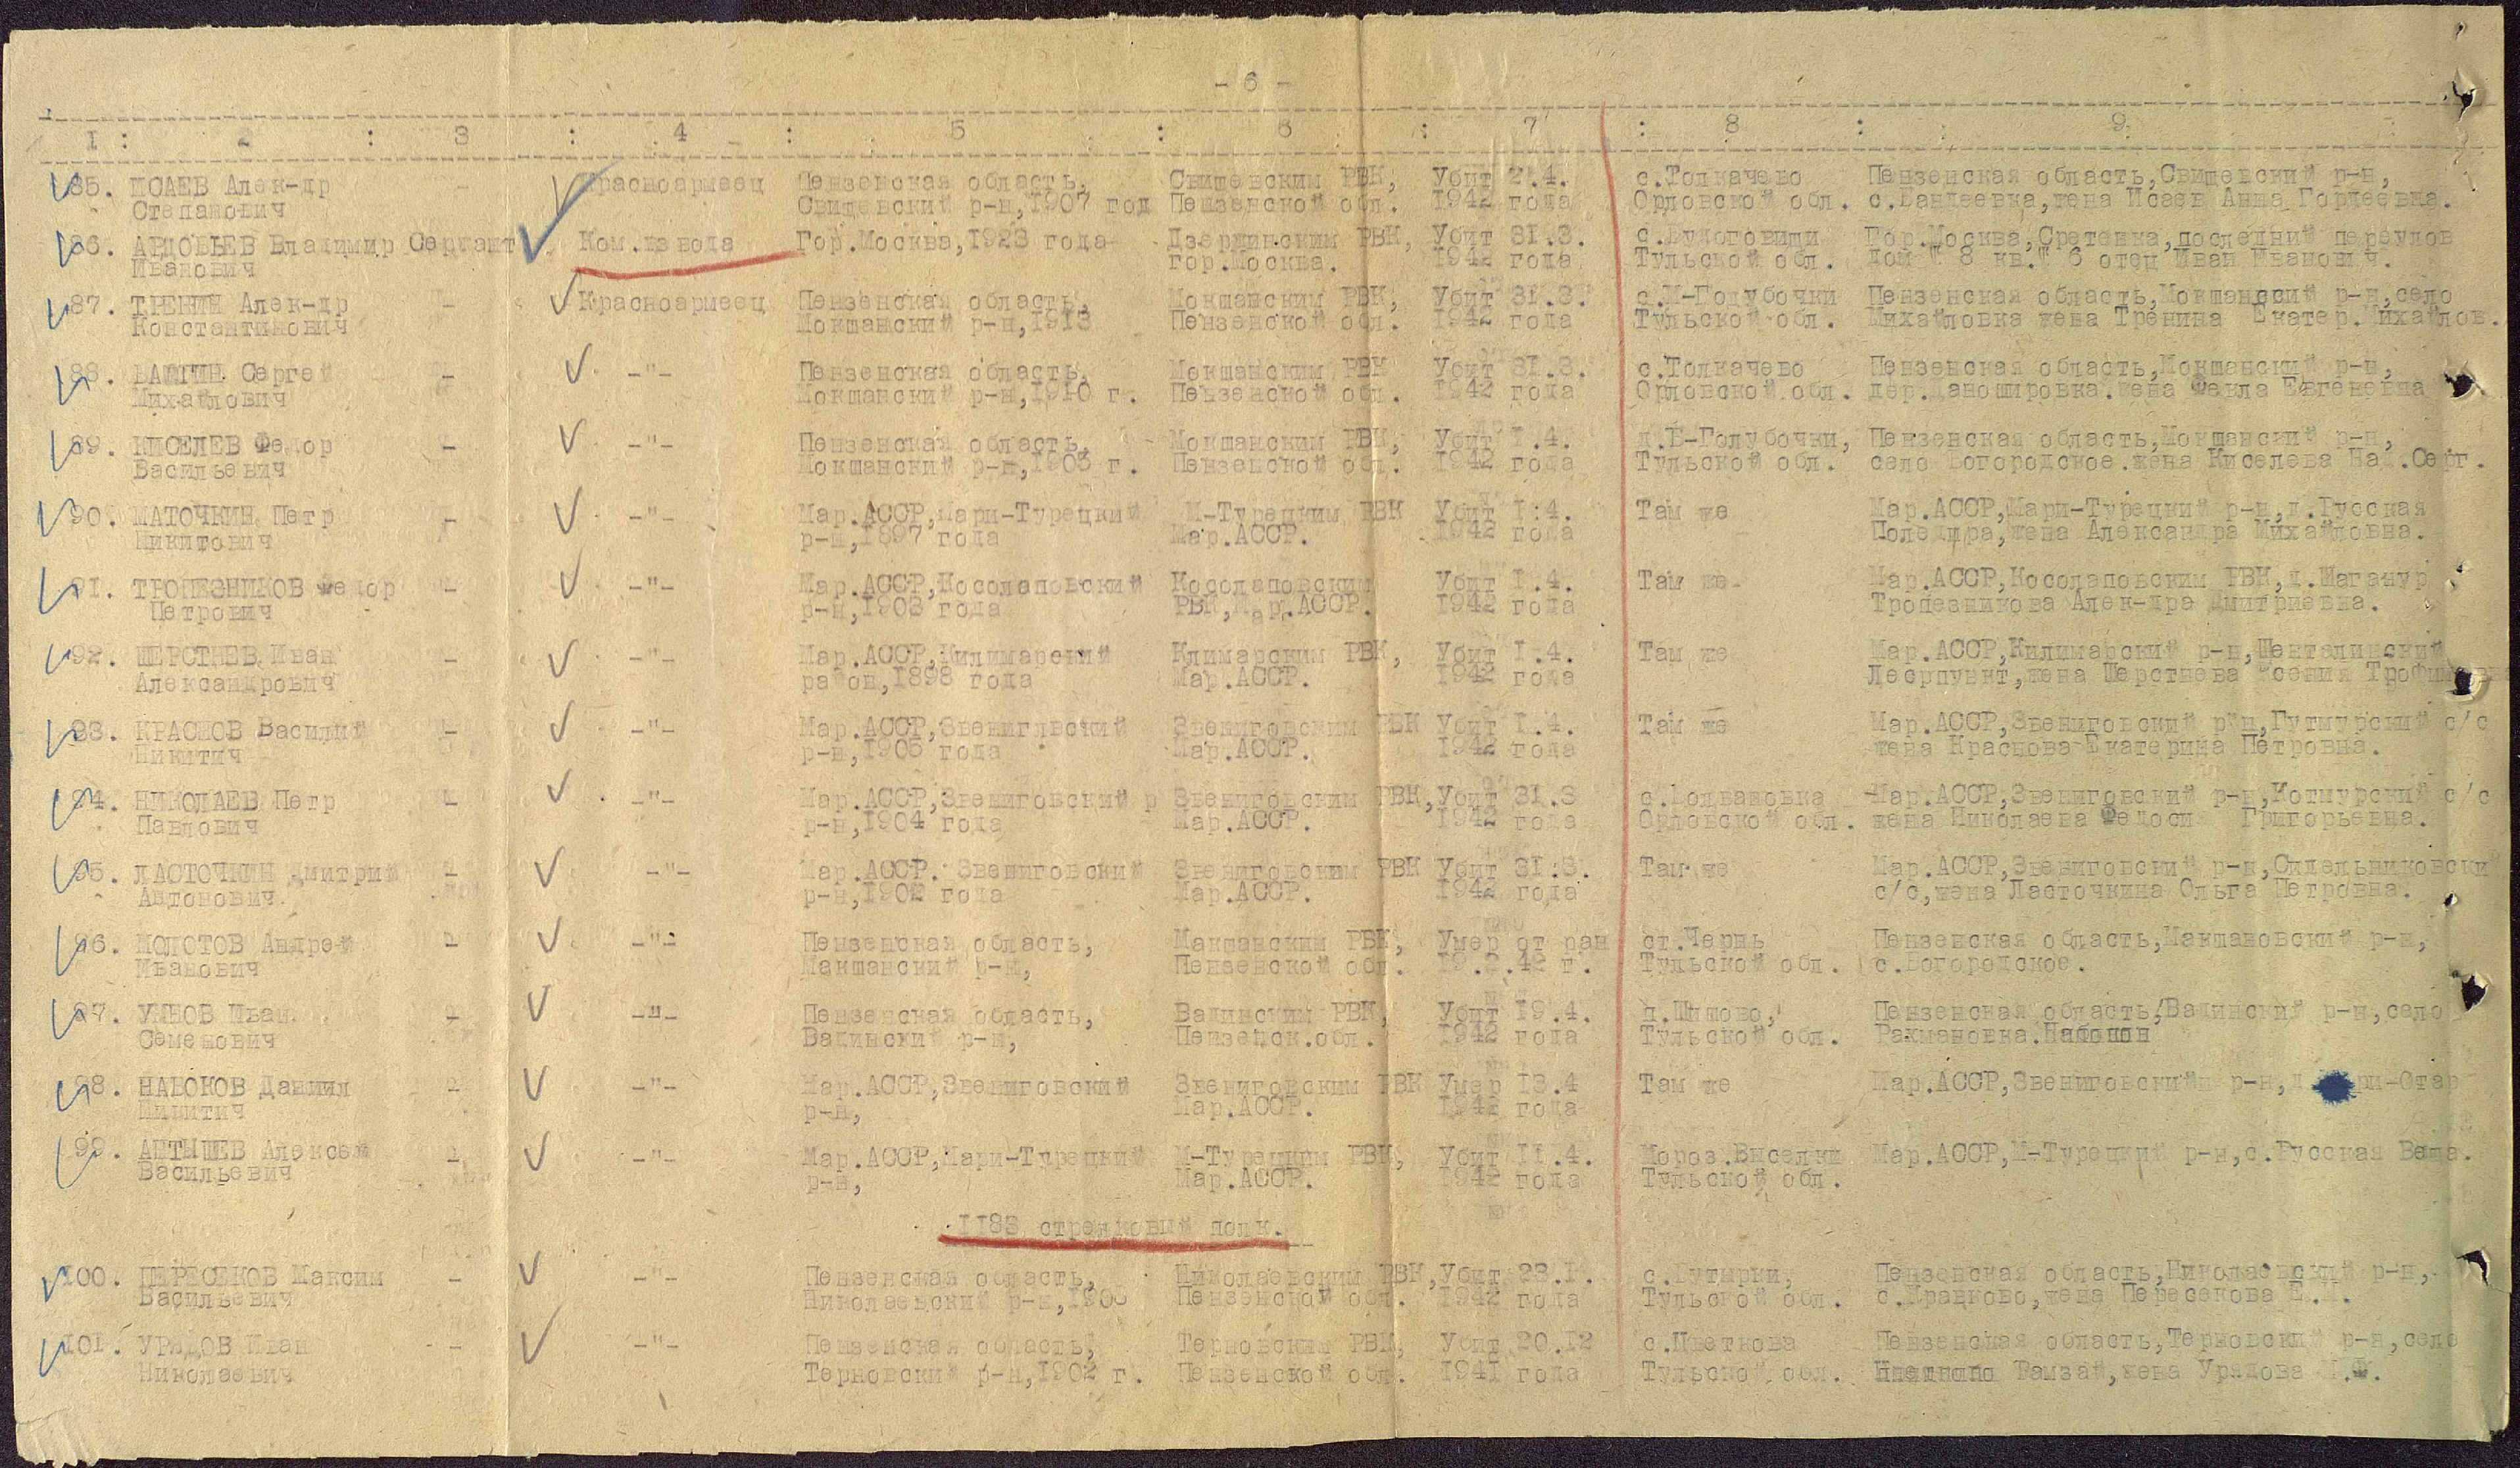 - 6 -
1 : 2 : 3 : 4 : 5 : 6 : 7 : 8 : 9
85. ИСАЕВ Алек-др - Красноармеец Пензенская область, Свищевским РВК, Убит 2.4. с.Толкачево Пензенская область,Свищевский р-н,
Степанович Свищевский р-н,1907 год Пензенской обл. 1942 года Орловской обл. с.Вандеевка,жена Исаев Анна Гордеевна.
86. АВДОВЬЕВ Владимир Сержант Ком.взвода Гор.Москва,1923 года Дзержинским РВК, Убит 31.3. с.Будоговищи Гор.Москва,Сретенка,последний переулов
Иванович гор.Москва. 1942 года Тульской обл. дом № 8 кв.№ 6 отец Иван Иванович.
87. ТРЕНИН Алек-др - Красноармеец Пензенская область, Мокшанским РВК, Убит 31.3. с.М-Голубочки Пензенская область,Мокшанский р-н,село
Константинович Мокшанский р-н,1913 Пензенской обл. 1942 года Тульской обл. Михайловка жена Тренина Екатер.Михайлов.
88. Сергей - -"- Пензенская область, Мокшанским РВК Убит 31.3. с.Толкачево Пензенская область,Мокшанский р-н,
Михайлович Мокшанский р-н,1910 г. Пензенской обл. 1942 года Орловской обл. дер. жена Евгеневна
89. КИСЕЛЕВ Федор - -"- Пензенская область, Мокшанским РВК, Убит 1.4. д.Б-Голубочки, Пензенская область,Мокшанский р-н,
Васильевич Мокшанский р-н,1903 г. Пензенской обл. 1942 года Тульской обл. село Богородское.жена Киселева Над.Серг.
90. МАТОЧКИН Петр - -"- Мар.АССР,Мари-Турецкий М-Турецким РВК Убит 1.4. Там же Мар.АССР,Мари-Турецкий р-н,д.Русская
Никитович р-н,1897 года Мар.АССР. 1942 года жена Александра Михайловна.
91. ТРОПЕЗНИКОВ Федор - -"- Мар.АССР,Косолаповский Косолаповским Убит 1.4. Там же. Мар.АССР,Косолаповским РВК,д.
Петрович р-н,1903 года РВК,Мар.АССР. 1942 года Тропезникова Алек-дра Дмитриевна.
92. ШЕРСТНЕВ Иван - -"- Мар.АССР,Килимарский Климарским РВК, Убит 1.4. Там же Мар.АССР,Килимарский р-н,Шанталинский
Александрович район,1898 года Мар.АССР. 1942 года Лесрпункт,жена Шерстнева Ксения
93. КРАСНОВ Василий - -"- Мар.АССР,Звенигвский Звениговским РВК Убит 1.4. Там же Мар.АССР,Звениговский р-н,Гутмурский с/с
Никитич р-н,1905 года Мар.АССР. 1942 года жена Краснова Екатерина Петровна.
94. НИКОЛАЕВ Петр - -"- Мар.АССР,Звениговский р Звениговским РВК, Убит 31.3 с.Болвановка Мар.АССР,Звениговский р-н,Котмурский с/с
Павлович р-н,1904 года Мар.АССР. 1942 года Орловской обл. жена Николаева Федоси Григорьевна.
95. ЛАСТОЧКИН Дмитрий - -"- Мар.АССР. Звениговский Звениговским РВК Убит 31.3. Там же Мар.АССР,Звениговский р-н,Сидельниковски
Антонович р-н,1902 года Мар.АССР. 1942 года с/с,жена Ласточкина Ольга Петровна.
96. МОЛОТОВ Андрей - -"- Пензенская область, Макшанским РВК, Умер от ран ст.Чернь Пензенская область,Макшановский р-н,
Иванович Макшанский р-н, Пензенской обл. 19.2.42 г. Тульской обл. с.Богородское.
97. УМНОВ Иван - -"- Пензенская область, Вадинским РВК, Убит 19.4. д.Шашово, Пензенская область,Вадинский р-н,село
Семенович Вадинский р-н, Пензенск.обл. 1942 года Тульской обл. Рахмановка.
98. НАБОКОВ Даниил - -"- Мар.АССР,Звениговский Звениговским РВК Умер 13.4 Там же Мар.АССР,Звениговский р-н,
Никитич р-н, Мар.АССР. 1942 года
99. АШТЫШЕВ Алексей - -"- Мар.АССР,Мари-Турецкий М-Турецким РВК, Убит 11.4. Мороз.Выселки Мар.АССР,М-Турецкий р-н,с.Русская
Васильевич р-н, Мар.АССР. 1942 года Тульской обл.
1183 стрелковый полк.
100. ПЕРЕСЕКОВ Максим - -"- Пензенская область, Николаевским РВК, Убит 23.1. с.Бутырки, Пензенская область,Николаевский р-н,
Васильевич Николаевский р-н, Пензенской обл. 1942 года Тульской обл. жена Пересекова
101. УРЯДОВ Иван - -"- Пензенская область, Терновским РВК, Убит 20.12 с.Цветкова Пензенская область,Терновский р-н,село
Николаевич Терновский р-н,1902 г. Пензенской обл. 1941 года Тульской обл. Рамзай,жена Урядова